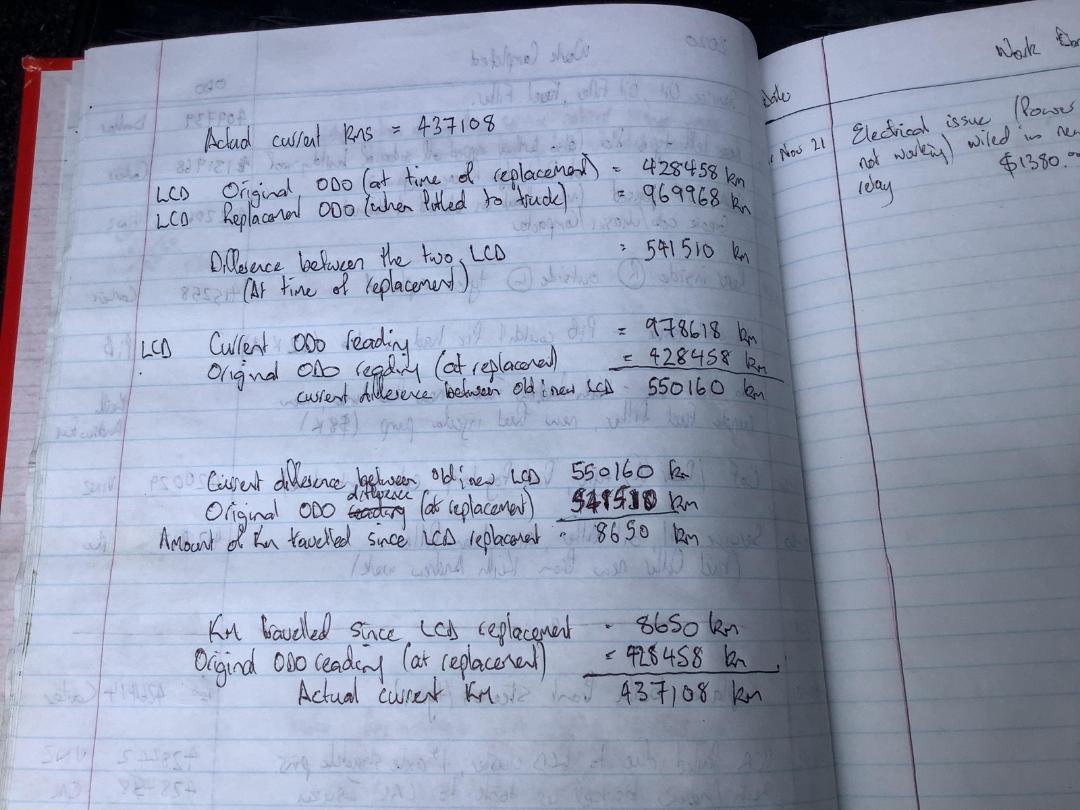 Actual current Kms = 437108
LCD Original ODO (at time of replacement) = 428458 km
LCD Replacement ODO (when fitted to truck) = 969968 km
Difference between the two LCD = 541510 km
(At time of replacement)
LCD Current ODO reading = 978618 km
Original ODO reading (at replacement) = 428458 km
current difference between old i new LCD 550160 km
Current difference between old i new LCD 550160 km
Original ODO difference (at replacement) 541510 km
Amount of km travelled since LCD replacement = 8650 km
KM travelled since LCD replacement = 8650 km
Original ODO reading (at replacement) = 428458 km
Actual current KM 437108 km
Work
Date
Nov 21 Electrical issue (Power
not working) wired in new
relay $1380.